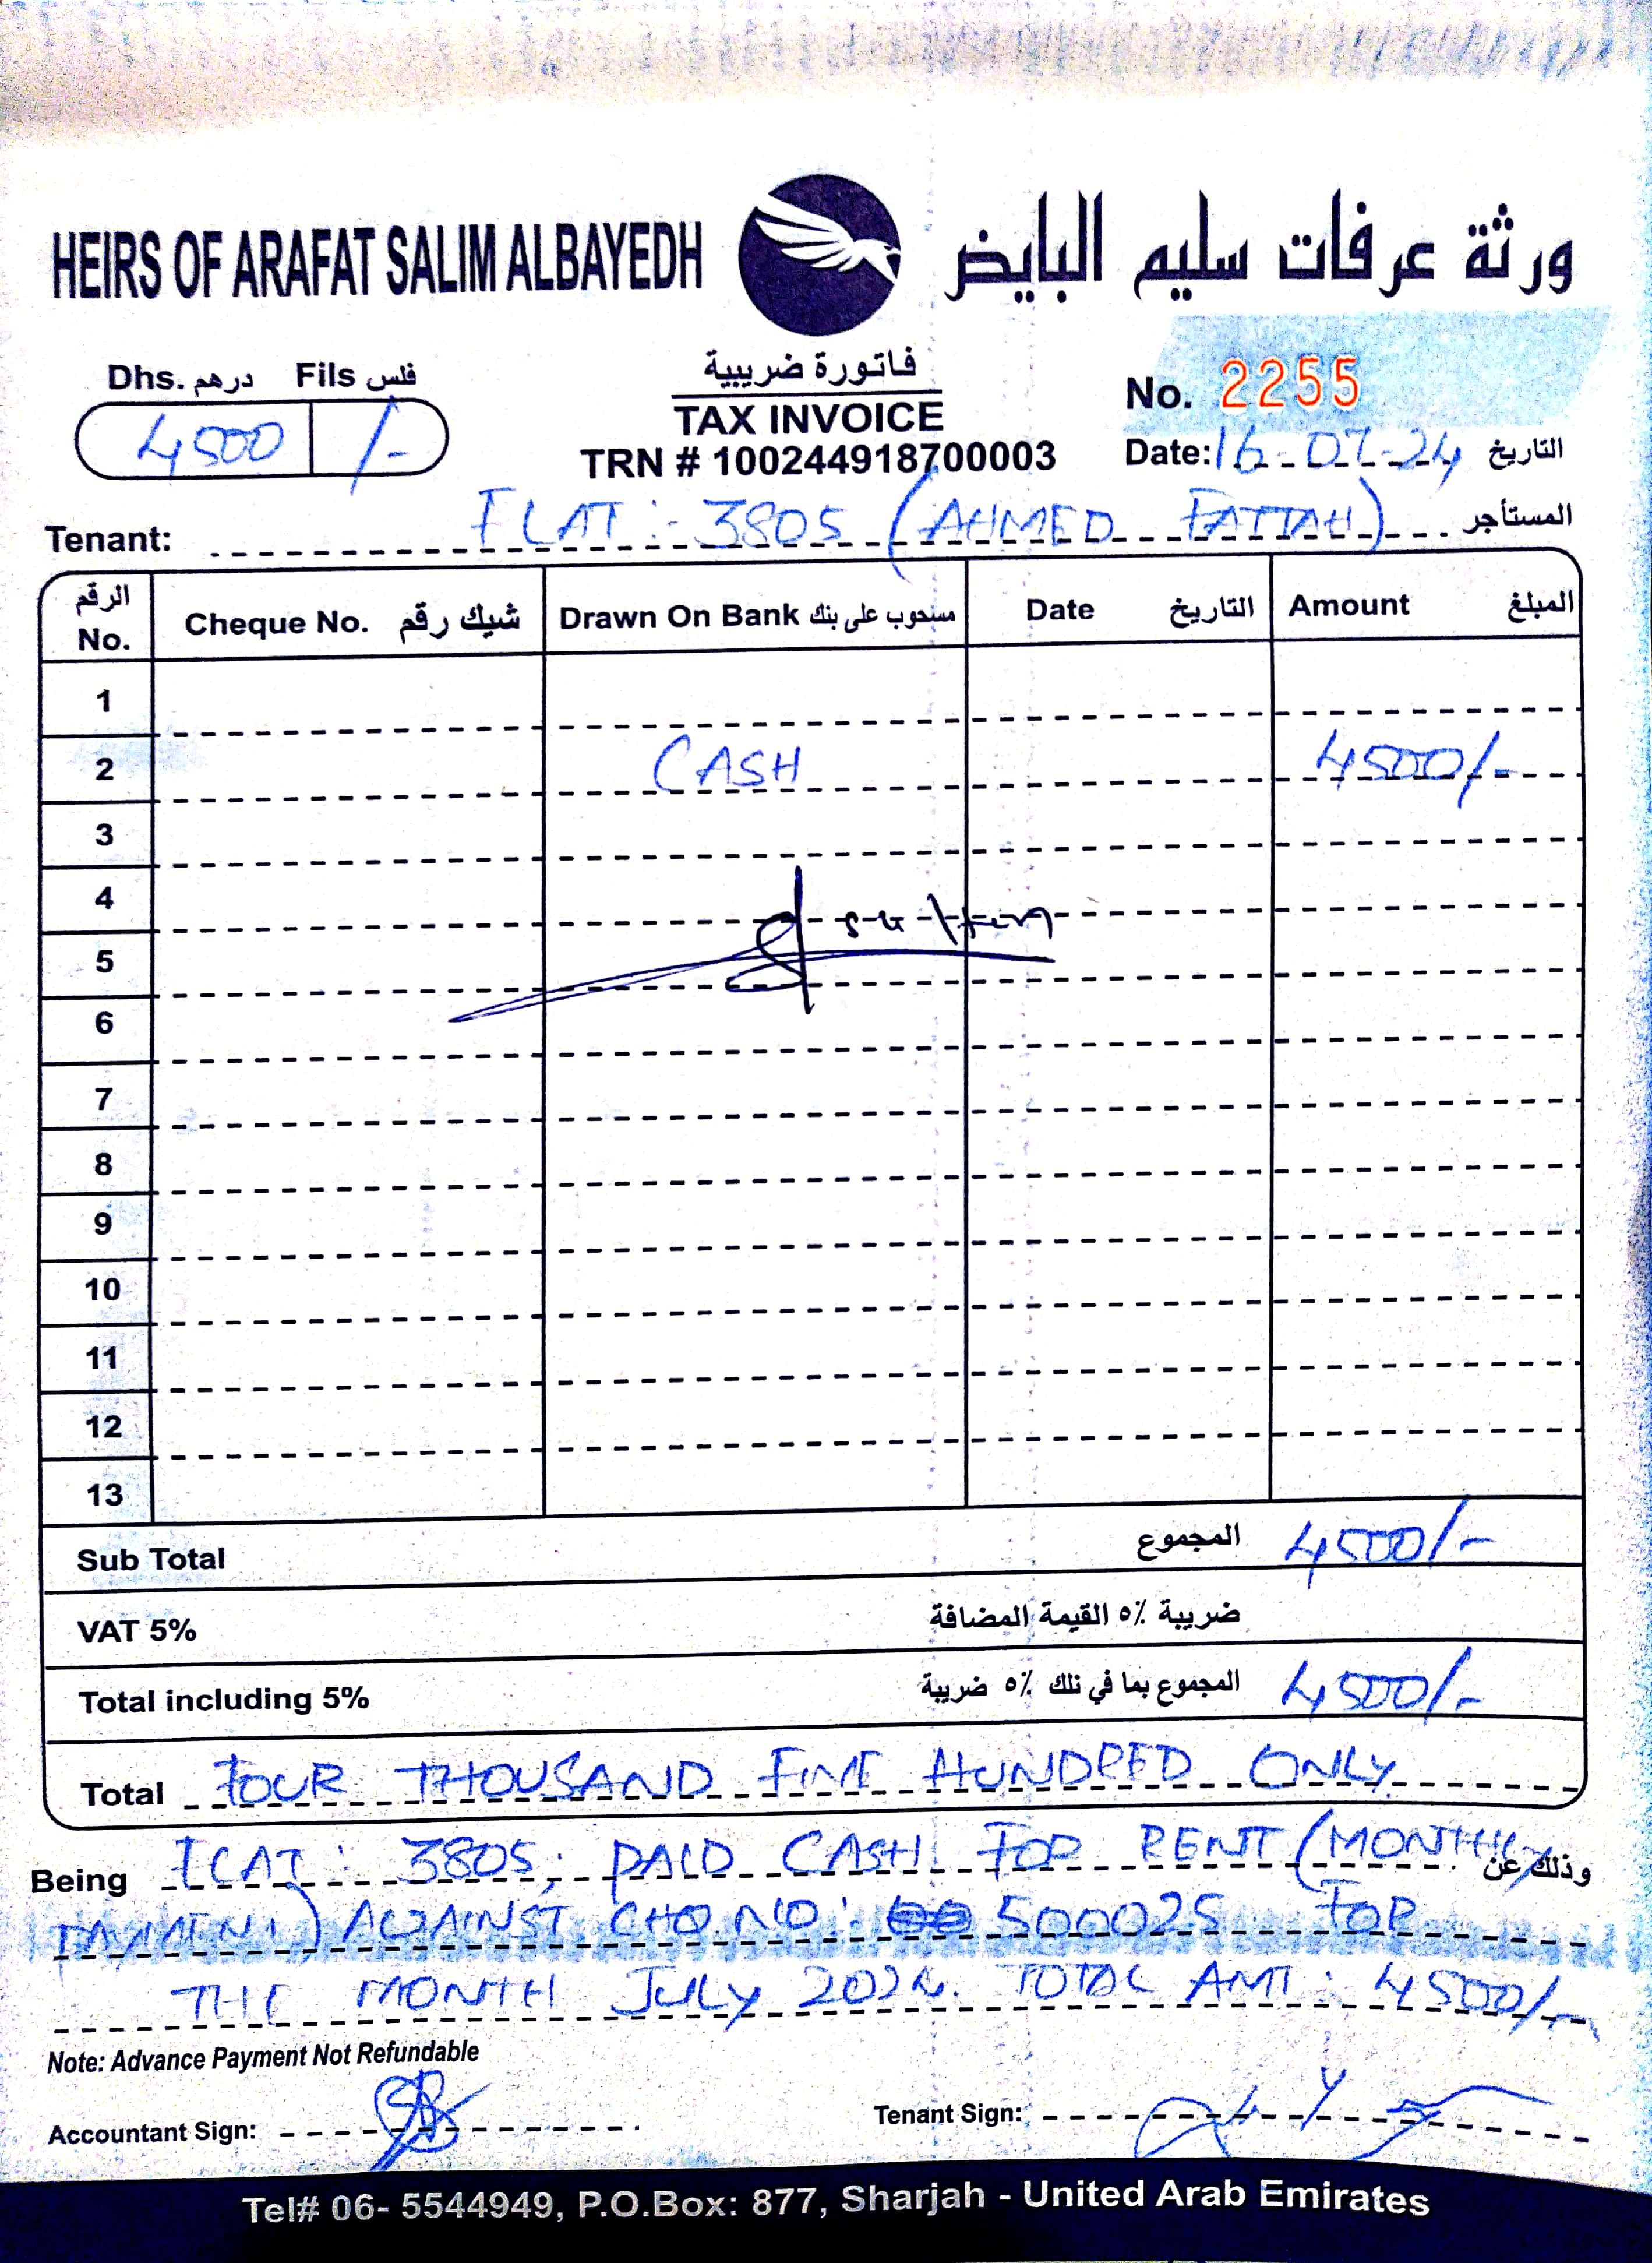 HEIRS OF ARAFAT SALIM ALBAYEDH ورثة عرفات سليم البايض
Dhs. درهم Fils فلس
4500 /-
فاتورة ضريبية
TAX INVOICE
TRN # 100244918700003
No. 2255
Date: 16-07-24 التاريخ
Tenant: FLAT:- 3805 (AHMED FATTAH) المستأجر
الرقم No. Cheque No. شيك رقم Drawn On Bank مسحوب على بنك Date التاريخ Amount المبلغ
1
2 CASH 4500/-
3
4
5
6
7
8
9
10
11
12
13
Sub Total المجموع 4500/-
VAT 5% ضريبة ٥٪ القيمة المضافة
Total including 5% المجموع بما في ذلك ٥٪ ضريبة 4500/-
Total FOUR THOUSAND FIVE HUNDRED ONLY
Being FLAT: 3805, PAID CASH FOR RENT (MONTHLY وذلك عن
PAYMENT) AGAINST CHQ NO: 500025 FOR
THE MONTH JULY 2024. TOTAL AMT: 4500/-
Note: Advance Payment Not Refundable
Accountant Sign: Tenant Sign:
Tel# 06- 5544949, P.O.Box: 877, Sharjah - United Arab Emirates